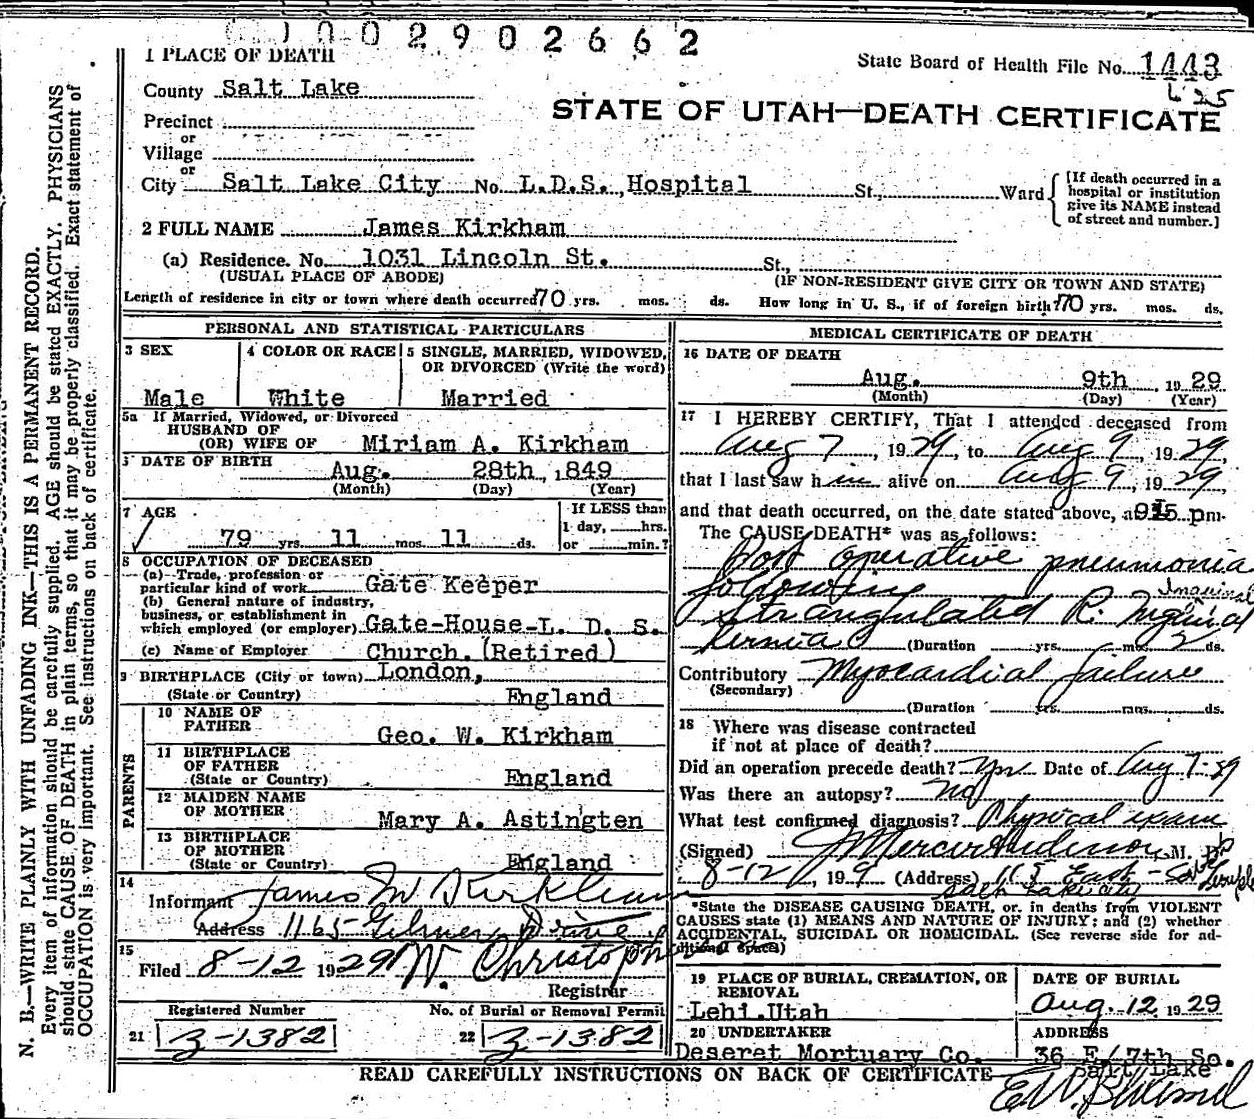 002902662
1 PLACE OF DEATH
State Board of Health File No. 1443
County Salt Lake
STATE OF UTAH—DEATH CERTIFICATE
Precinct
or
Village
or
City Salt Lake City No. L.D.S. Hospital St., Ward
[If death occurred in a
hospital or institution
give its NAME instead
of street and number.]
2 FULL NAME James Kirkham
(a) Residence. No. 1031 Lincoln St. St.,
(USUAL PLACE OF ABODE) (IF NON-RESIDENT GIVE CITY OR TOWN AND STATE)
Length of residence in city or town where death occurred 70 yrs. mos. ds. How long in U. S., if of foreign birth? 70 yrs. mos. ds.
PERSONAL AND STATISTICAL PARTICULARS
3 SEX 4 COLOR OR RACE 5 SINGLE, MARRIED, WIDOWED,
OR DIVORCED (Write the word)
Male White Married
5a If Married, Widowed, or Divorced
HUSBAND OF
(OR) WIFE OF Miriam A. Kirkham
DATE OF BIRTH
Aug. 28th, 1849
(Month) (Day) (Year)
7 AGE If LESS than
79 yrs. 11 mos. 11 ds. 1 day, hrs.
or min.?
8 OCCUPATION OF DECEASED
(a) Trade, profession or
particular kind of work Gate Keeper
(b) General nature of industry,
business, or establishment in
which employed (or employer) Gate-House-L. D. S.
(c) Name of Employer Church.(Retired)
9 BIRTHPLACE (City or town) London,
(State or Country) England
PARENTS
10 NAME OF
FATHER Geo. W. Kirkham
11 BIRTHPLACE
OF FATHER
(State or Country) England
12 MAIDEN NAME
OF MOTHER Mary A. Astingten
13 BIRTHPLACE
OF MOTHER
(State or Country) England
14
Informant James M Kirkham
Address 1165 Gilmer Drive
15
Filed 8-12 1929 W. Christoph
Registrar
Registered Number No. of Burial or Removal Permit
21 Z-1382 22 Z-1382
MEDICAL CERTIFICATE OF DEATH
16 DATE OF DEATH
Aug. 9th, 1929
(Month) (Day) (Year)
17 I HEREBY CERTIFY, That I attended deceased from
Aug 7, 1929, to Aug 9, 1929,
that I last saw him alive on Aug 9, 1929,
and that death occurred, on the date stated above, at 915 pm.
The CAUSE DEATH* was as follows:
Post operative pneumonia
following Inguinal
Strangulated R. Inguinal
hernia (Duration yrs. mos. 2 ds.
Contributory Myocardial failure
(Secondary)
(Duration yrs. mos. ds.
18 Where was disease contracted
if not at place of death?
Did an operation precede death? Yes Date of Aug 7-29
Was there an autopsy? No
What test confirmed diagnosis? Physical exam
(Signed) J Mercer Anderson, M. D.
8-12, 19 9 (Address) 115 East So Temple
Salt Lake City
*State the DISEASE CAUSING DEATH, or. in deaths from VIOLENT
CAUSES state (1) MEANS AND NATURE OF INJURY; and (2) whether
ACCIDENTAL, SUICIDAL OR HOMICIDAL. (See reverse side for ad-
ditional space)
19 PLACE OF BURIAL, CREMATION, OR
REMOVAL
Lehi.Utah
DATE OF BURIAL
Aug. 12 1929
20 UNDERTAKER
Deseret Mortuary Co.
ADDRESS
36 E/ 7th So.
Salt Lake
READ CAREFULLY INSTRUCTIONS ON BACK OF CERTIFICATE
N. B.—WRITE PLAINLY WITH UNFADING INK—THIS IS A PERMANENT RECORD.
Every item of information should be carefully supplied. AGE should be stated EXACTLY. PHYSICIANS
should state CAUSE OF DEATH in plain terms, so that it may be properly classified. Exact statement of
OCCUPATION is very important. See instructions on back of certificate.